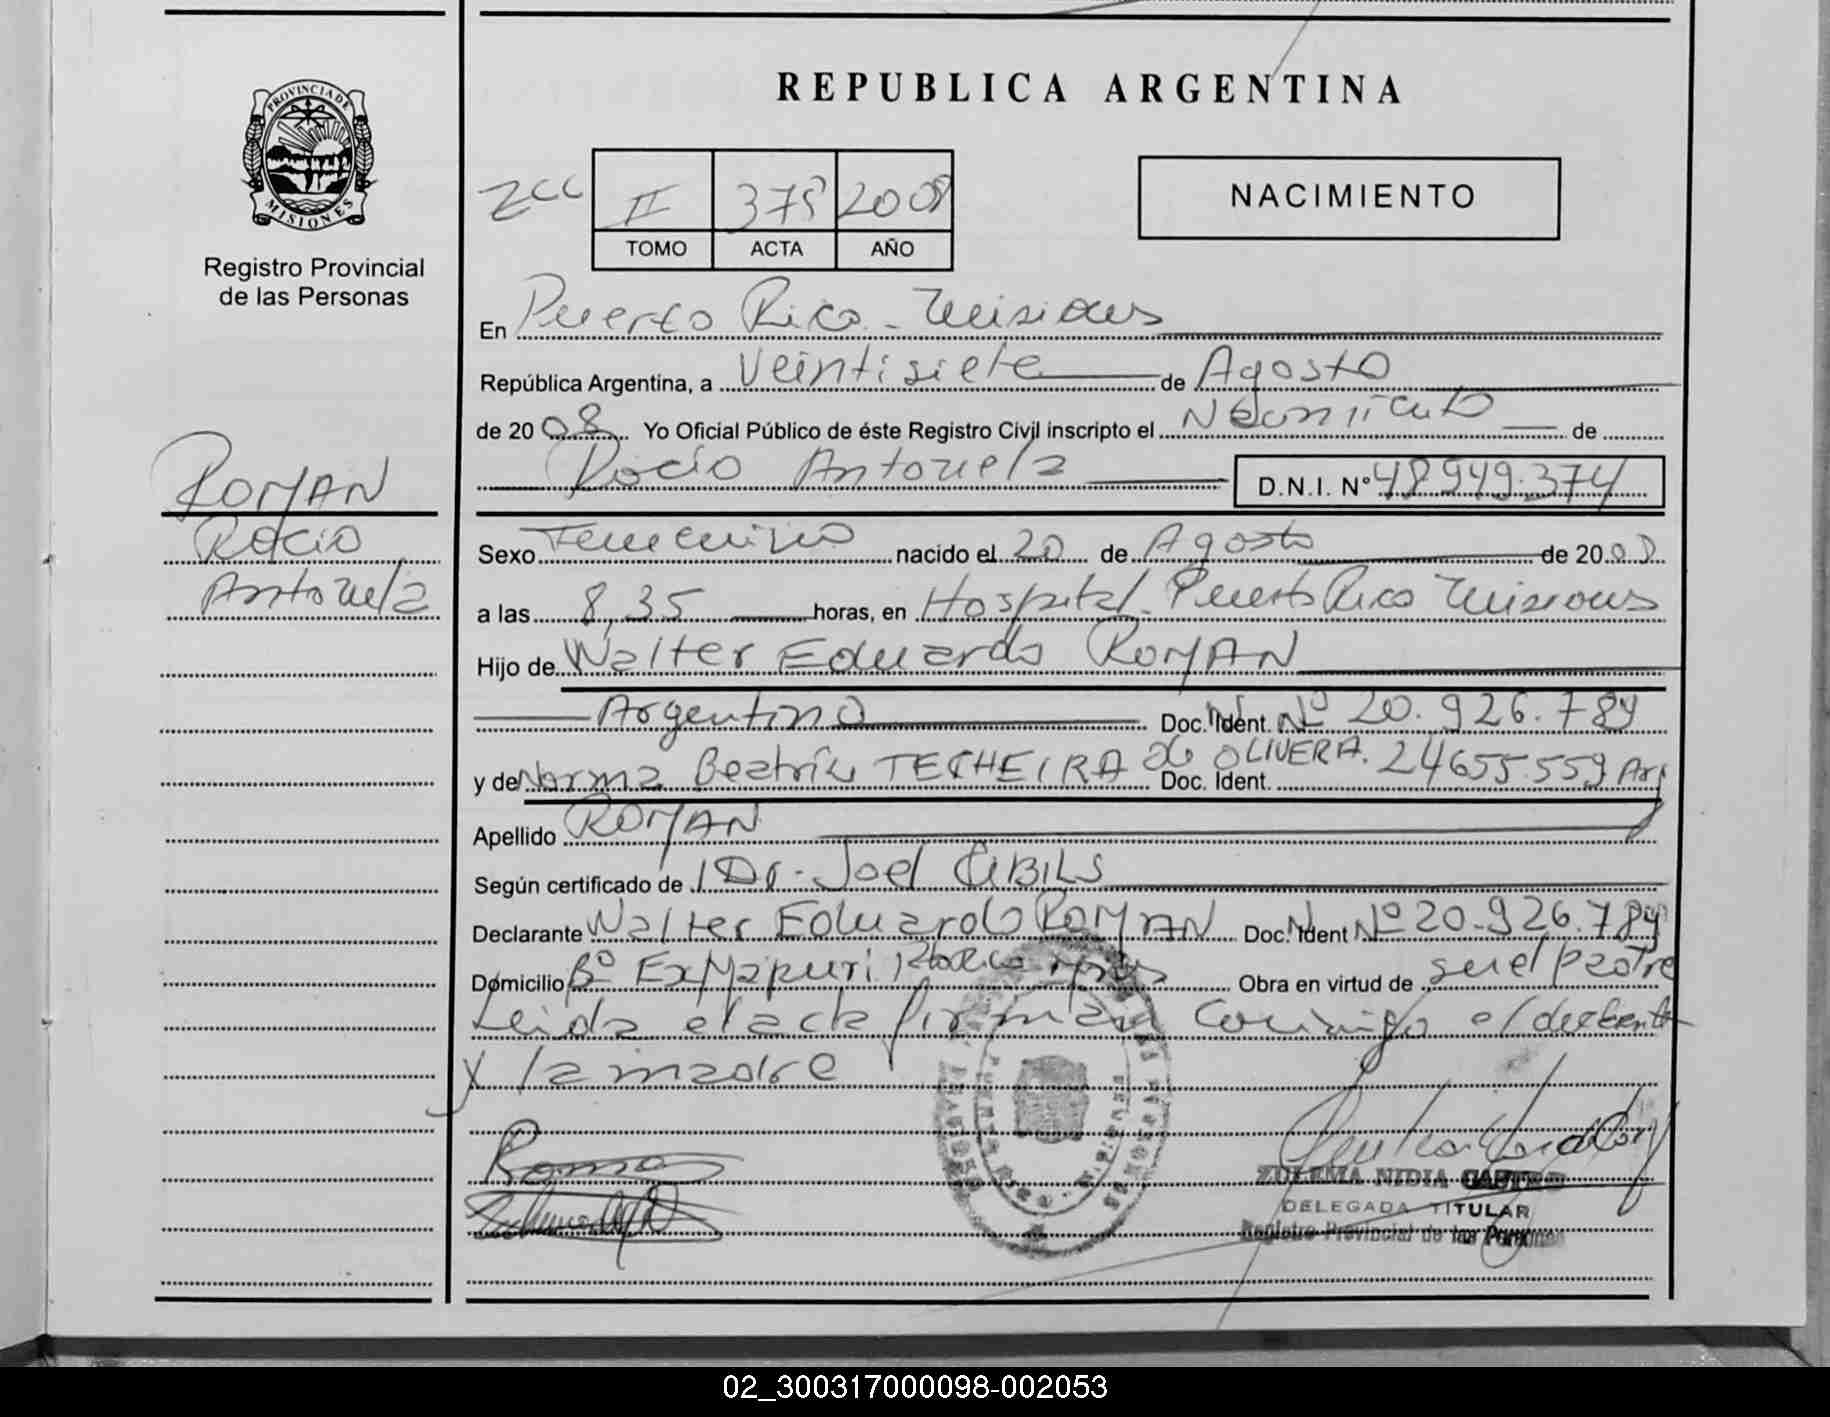 REPUBLICA ARGENTINA
PROVINCIA DE
MISIONES
Registro Provincial
de las Personas
II 2008
TOMO ACTA AÑO
NACIMIENTO
En Puerto Rico - Misiones
República Argentina, a Veintisiete de Agosto
de 2008 Yo Oficial Público de éste Registro Civil inscripto el Nacimiento de
Rocio Antonela D.N.I. Nº 48949.374
ROMAN
Rocio
Antonela
Sexo Femenino nacido el 20 de Agosto de 2008
a las 8,35 horas, en Hospital - Puerto Rico Misiones
Hijo de Walter Eduardo ROMAN
Argentino Doc. Ident. Nº 20.926.789
y de Norma Beatriz TECHEIRA de OLIVERA. Doc. Ident. 24655.559 Arg
Apellido ROMAN
Según certificado de Dr. Joel CIBILS
Declarante Walter Eduardo ROMAN Doc. Ident Nº 20.926.789
Domicilio Bº Ex Mapuri Obra en virtud de ser el padre
Leida el acta firman conmigo el declarante
y la madre
Roman
ZULEMA NIDIA CASTRO
DELEGADA TITULAR
Registro Provincial de las Personas
02_300317000098-002053